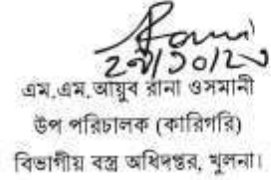 ২৭/১০/২০
এম.এম.আয়ুব রানা ওসমানী
উপ পরিচালক (কারিগরি)
বিভাগীয় বস্ত্র অধিদপ্তর, খুলনা।